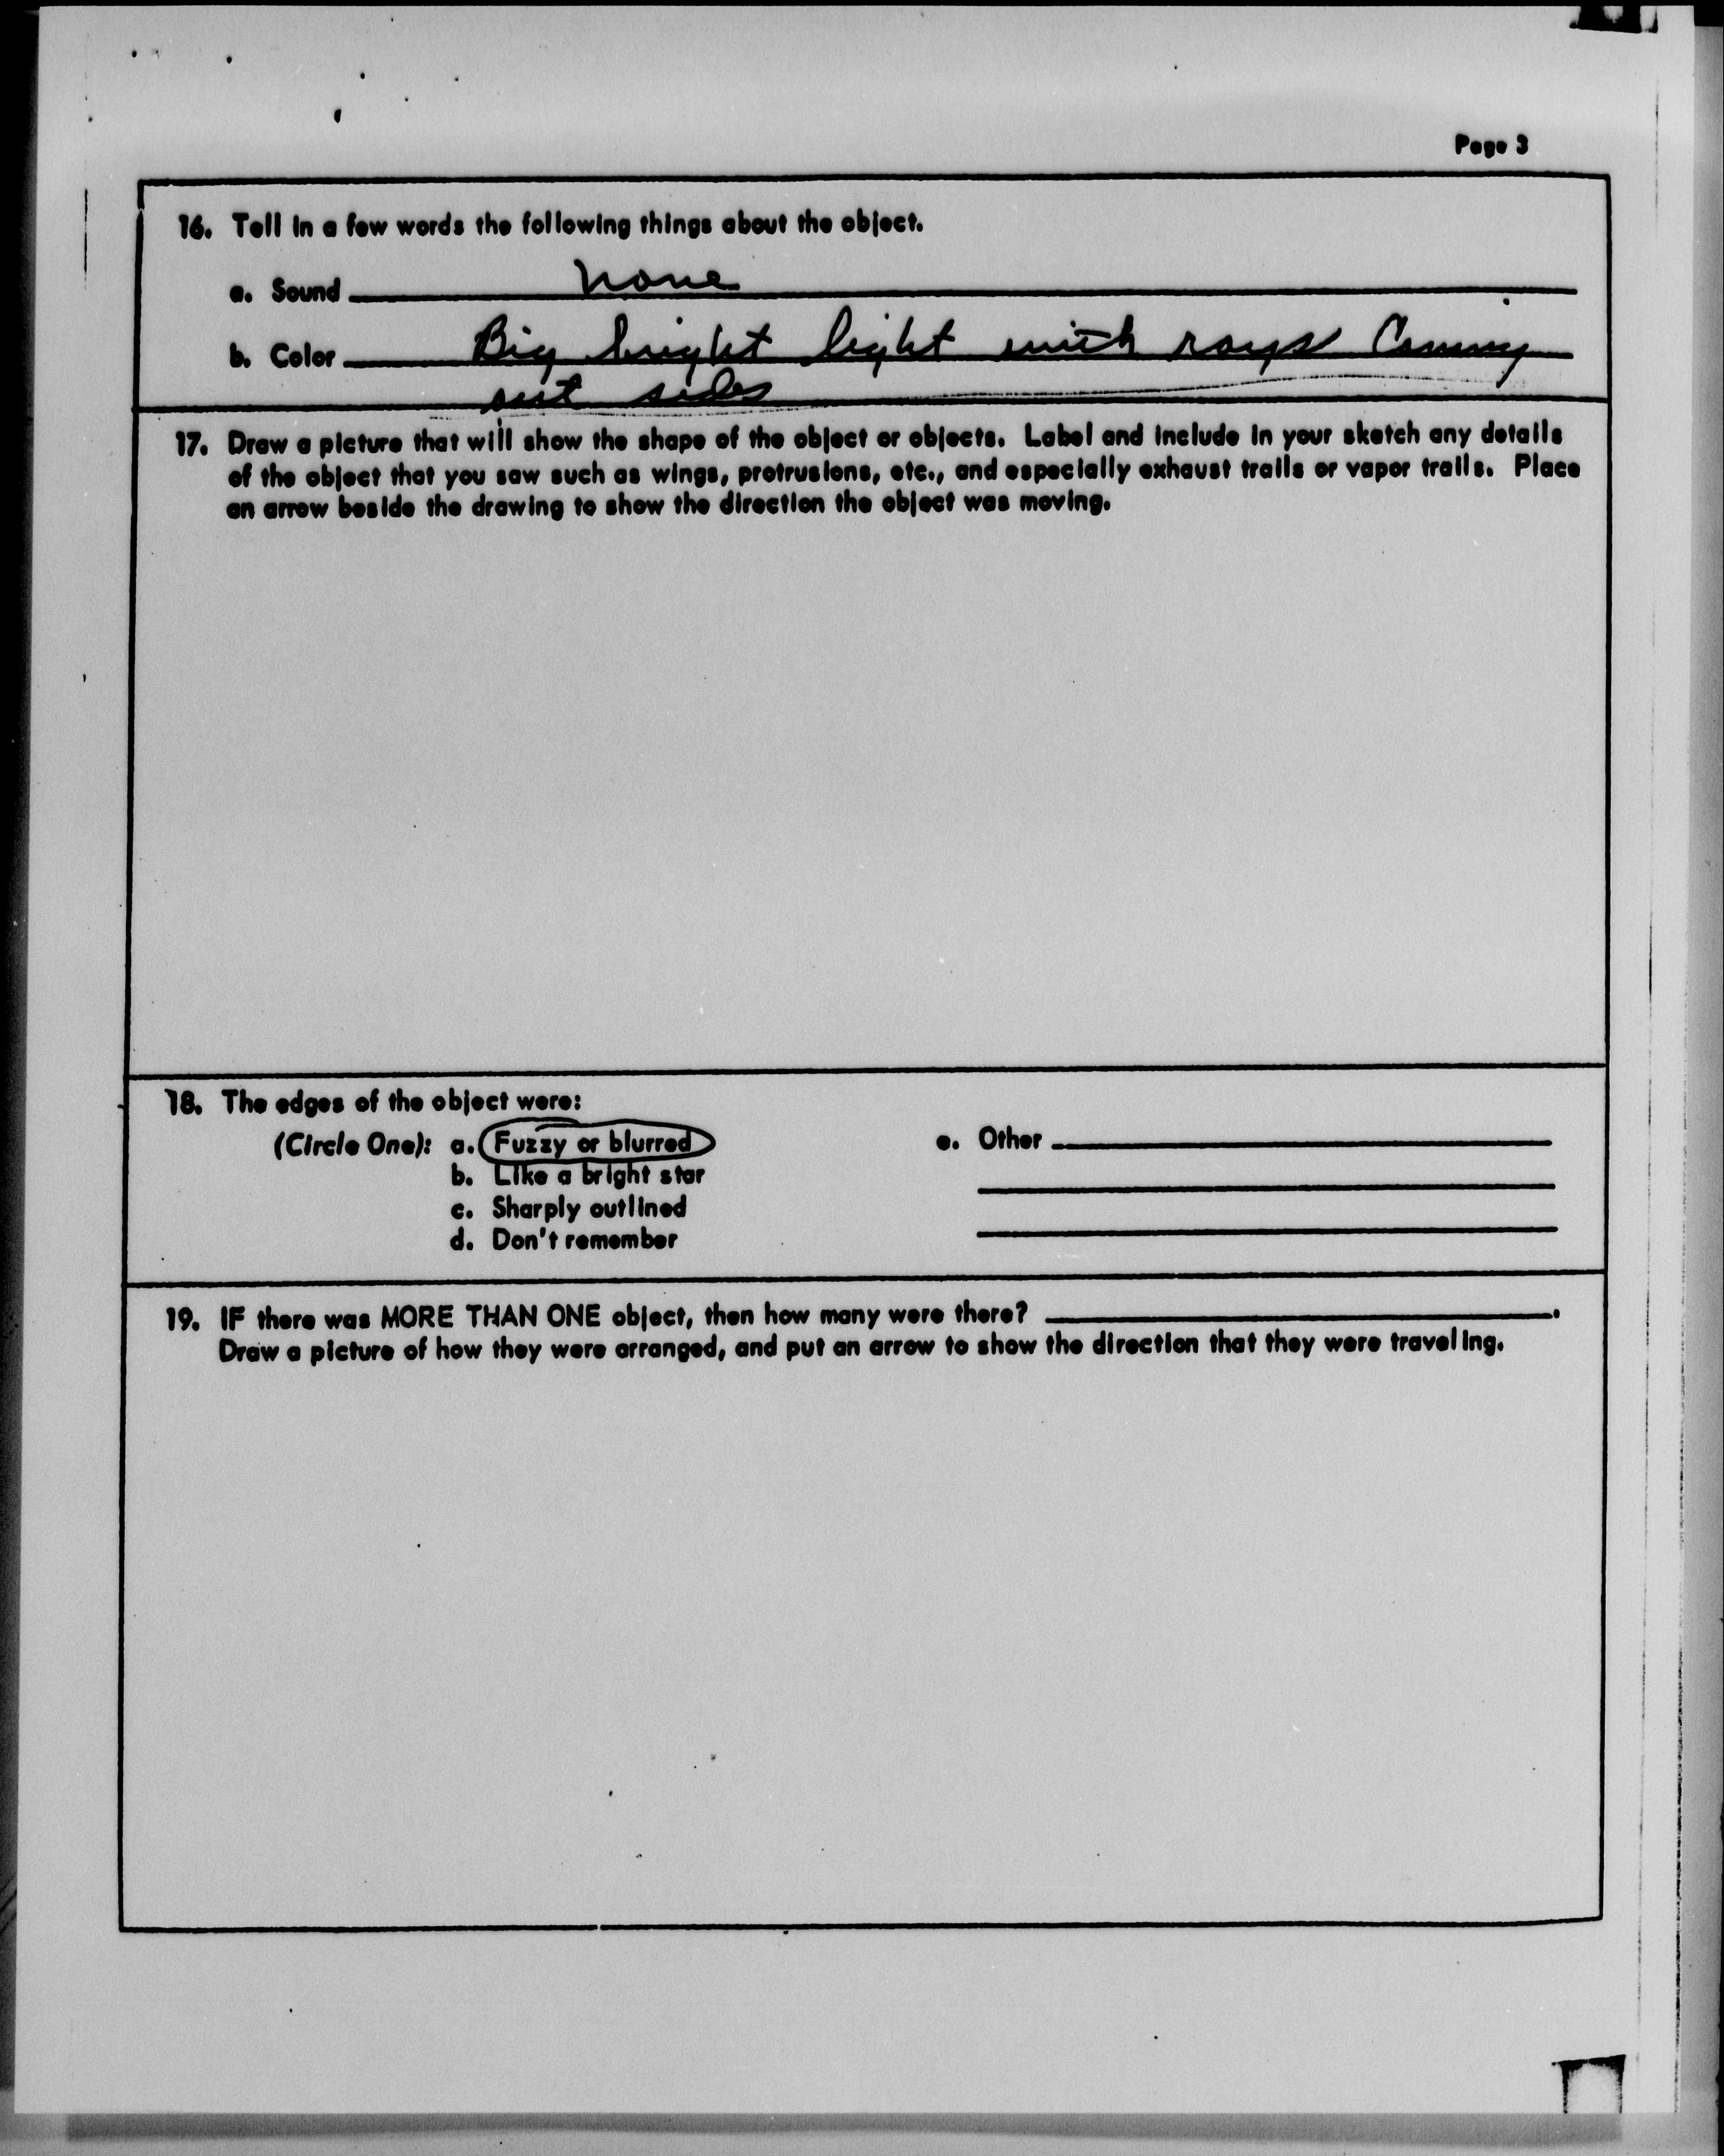 Page 3
16. Tell in a few words the following things about the object.
a. Sound none
b. Color Big bright light with rays Coming
out sides
17. Draw a picture that will show the shape of the object or objects. Label and include in your sketch any details
of the object that you saw such as wings, protrusions, etc., and especially exhaust trails or vapor trails. Place
an arrow beside the drawing to show the direction the object was moving.
18. The edges of the object were:
(Circle One): a. Fuzzy or blurred
b. Like a bright star
c. Sharply outlined
d. Don't remember
e. Other
19. IF there was MORE THAN ONE object, then how many were there? .
Draw a picture of how they were arranged, and put an arrow to show the direction that they were traveling.